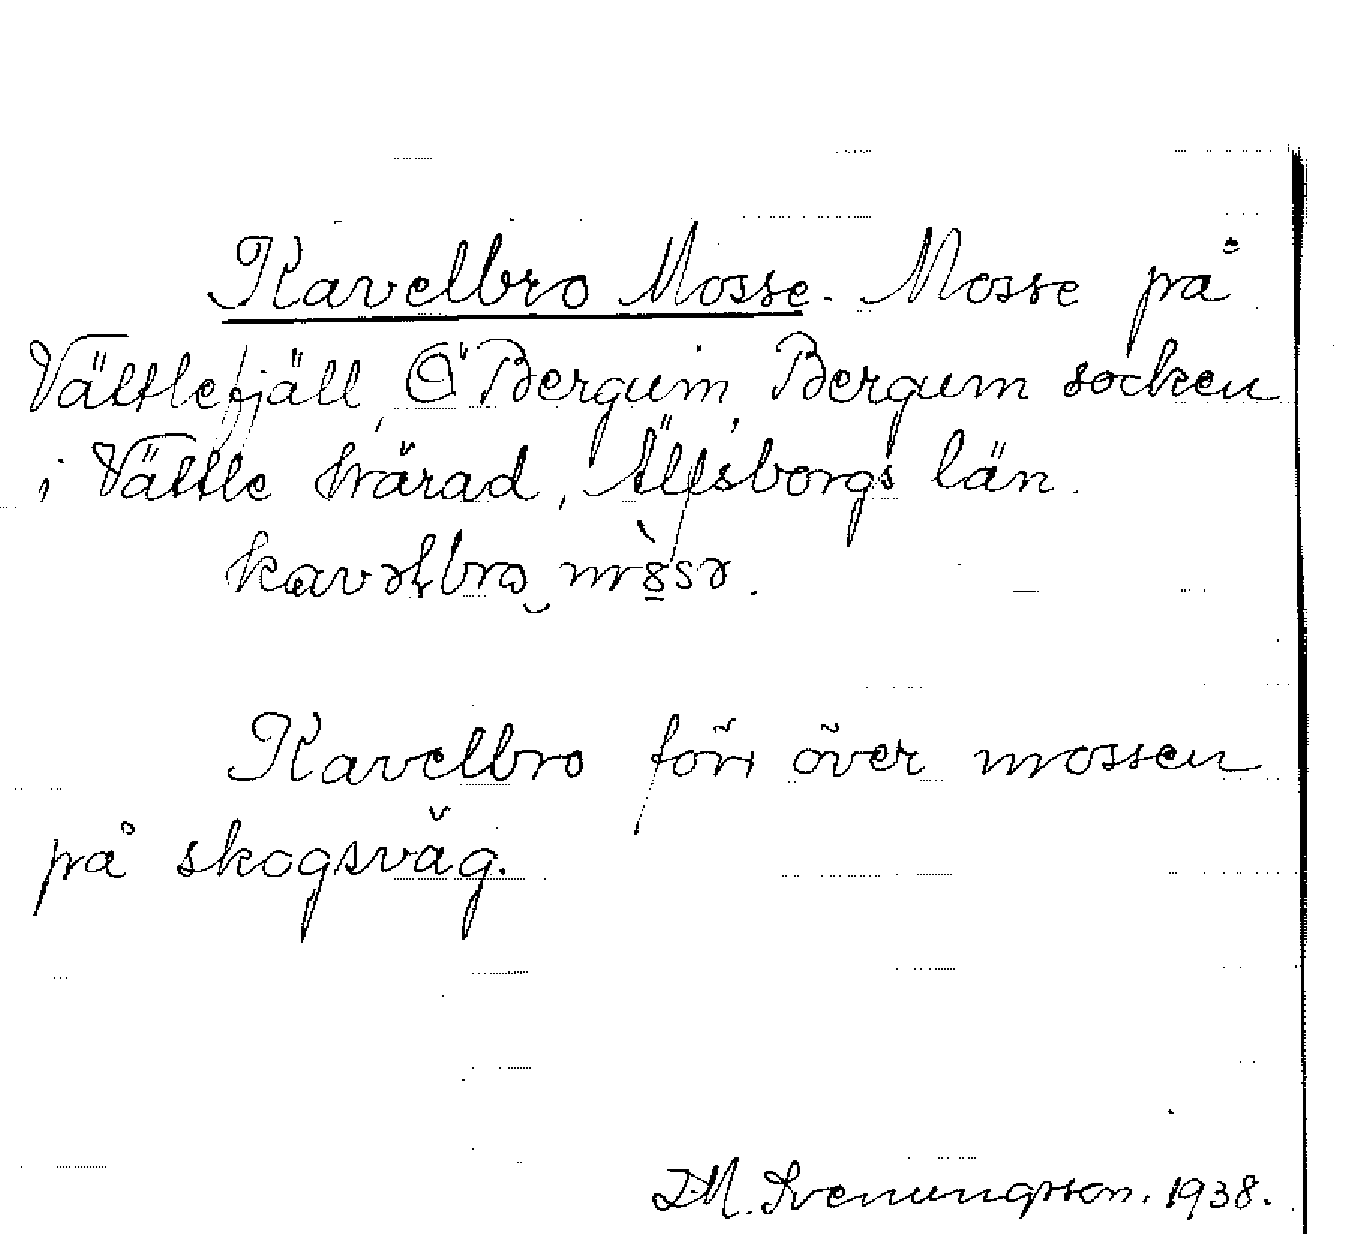 Kavelbro Mosse. Mosse på
Vättlefjäll, Ö Bergum, Bergum socken
i Vättle härad, Älfsborgs län.
kavəlbro
Kavelbro förr över mossen
på skogsväg.
D.M. Svenungsson. 1938.